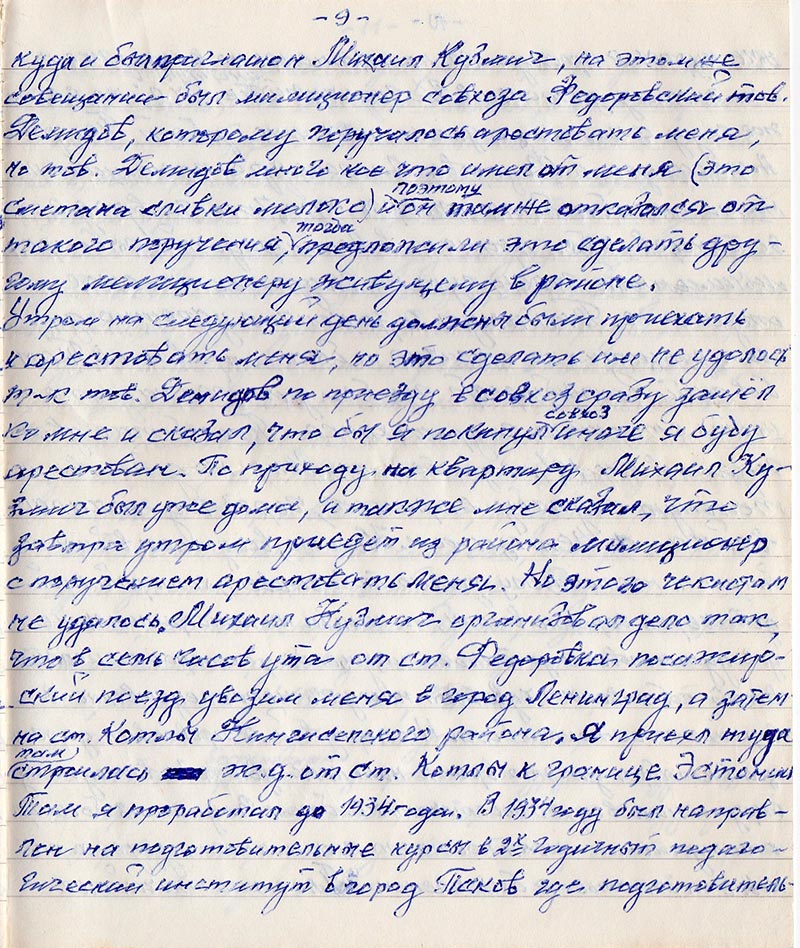 - 9 -
куда и был приглашон Михаил Кузмич, на этом же
совещании был милиционер совхоза Федоровский тов.
Демидов, которому поручалось арестовать меня,
но тов. Демидов много кое что имел от меня (это
поэтому
сметана сливки молоко) и он там же отказался от
тогда
такого поручения, предложили это сделать дру-
гому милиционеру живущему в районе.
Утром на следующий день должны были приехать
и арестовать меня, но это сделать им не удалось
т-к тов. Демидов по приезду в совхоз сразу зашёл
совхоз
ко мне и сказал, что бы я покинул иначе я буду
арестован. По приходу на квартиру Михаил Ку-
змич был уже дома, и также мне сказал, что
завтра утром приедет из района милиционер
с поручением арестовать меня. Но этого чекистам
не удалось. Михаил Кузмич организовал дело так,
что в семь часов ута от ст. Федоровка посажир-
ский поезд увозил меня в город Ленинград, а затем
на ст. Котлы Кингисепского района. Я приехл туда
там
строилась ж.д. от ст. Котлы к границе Эстонии
Там я проработал до 1934 года. В 1934 году был направ-
лен на подготовительные курсы в 2х годичный педаго-
гический институт в город Псков где подготовитель-